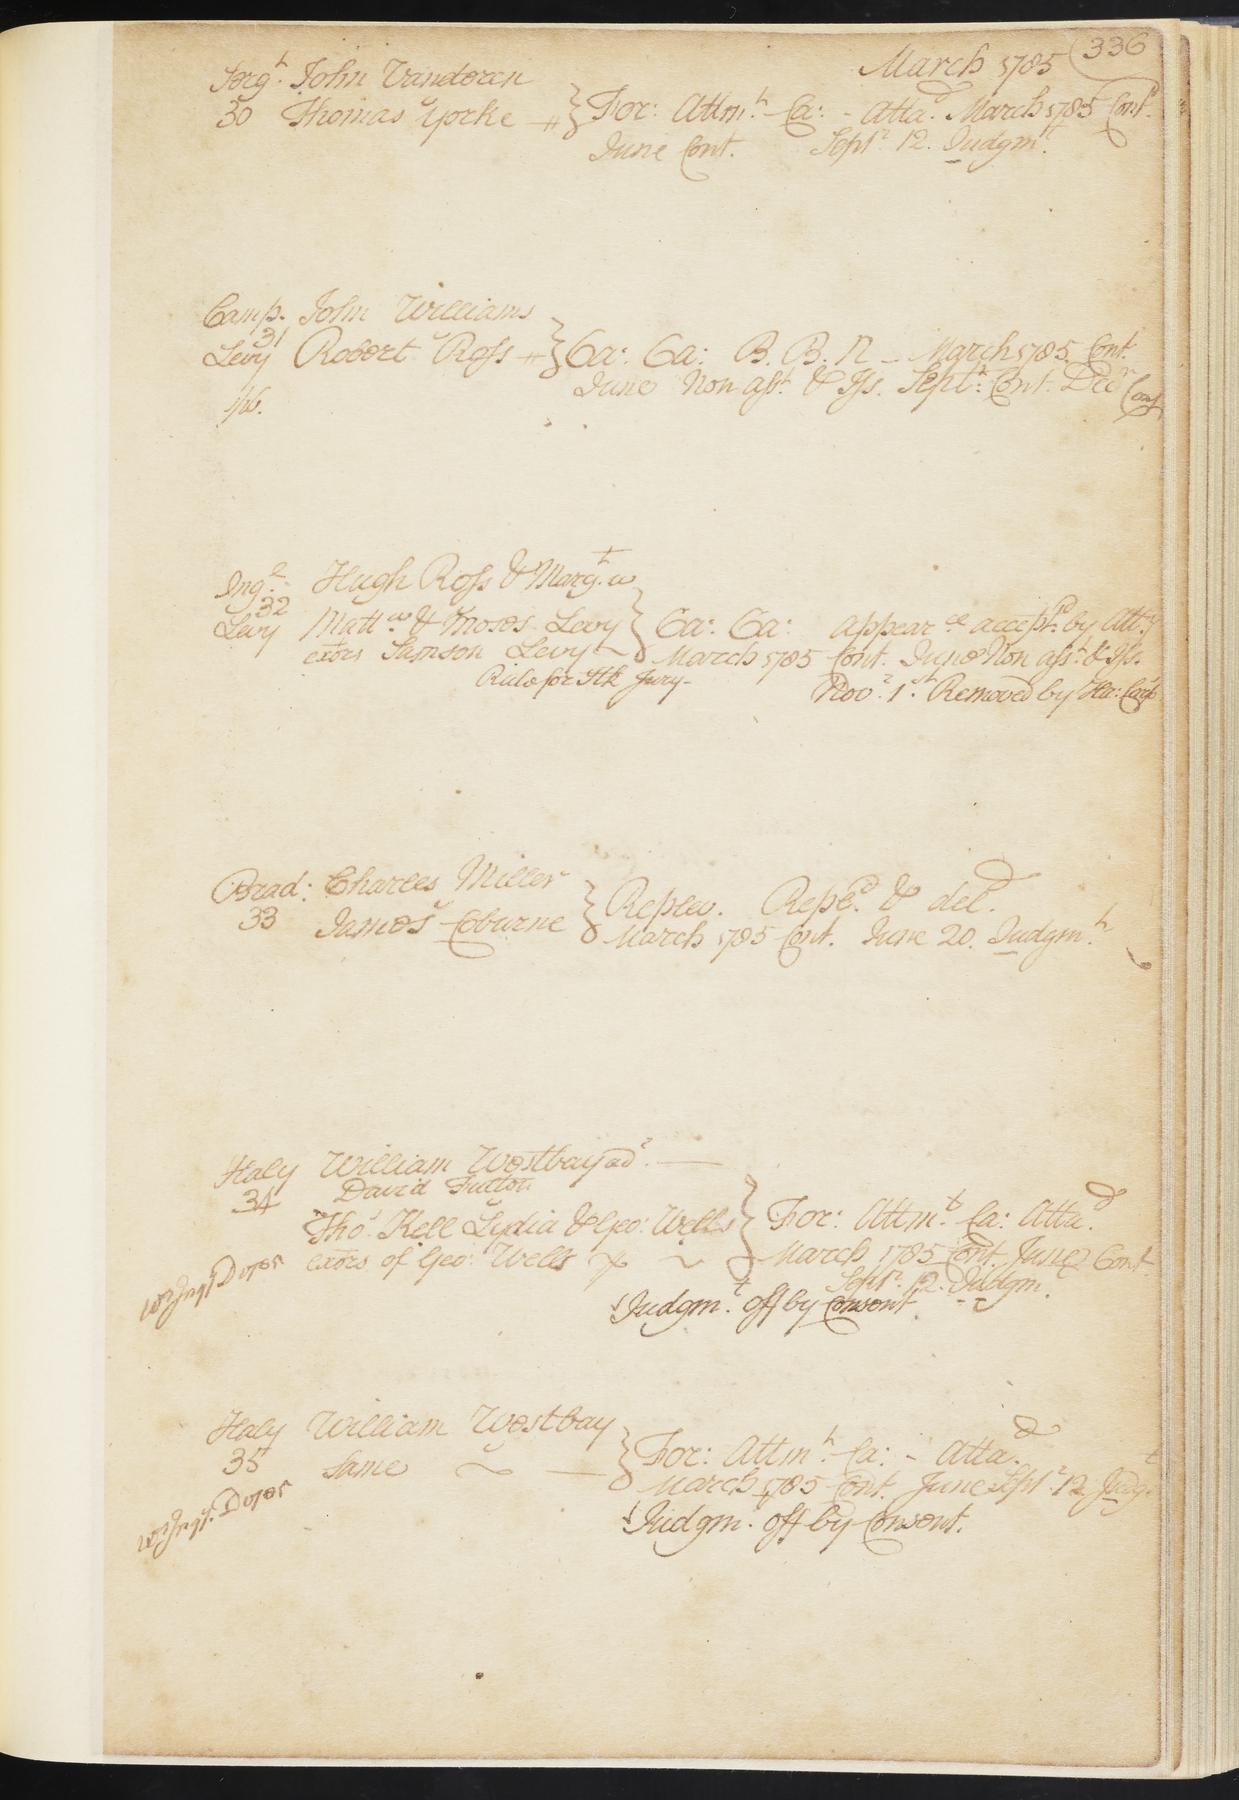 March 1785 336
Serg.t John Vandoren
30 Thomas Yorke } For: Attm.t Ca: - Atta.d March 1785 Cont.
June Cont. Sept.r 12. Judgm.t
Camp. John Williams
31
Levy Robert Ross } Ca: Ca: B. B. N - March 1785. Cont.
June Non ass.t & Iss. Sept.r Cont. Dec.r Conf
Ing.l Hugh Ross & Marg.t w
32
Levy Matt.w & Moses Levy } Ca: Ca: appear.ce accept.d by Att.y
exors Samson Levy March 1785 Cont. June Non ass.t & Iss.
Rule for Stk Jury - Nov.r 1.st Removed by Ha: Corp
Brad: Charles Miller
33 James Coburne } Replev. Repl.d & del.d
March 1785 Cont. June 20. Judgm.t
Haly William Westbay ad.r
34 David Fulton
Tho.s Kell Lydia & Geo: Wells } For: Attm.t Ca: Atta.d
exors of Geo: Wells March 1785 Cont. June Cont.
Sept.r 12. Judgm.t
Judgm.t off by Consent
Haly William Westbay
35 Same } For: Attm.t Ca: - Atta.d
March 1785 Cont. June Sept.r 12. Judg.t
Judgm.t off by Consent.